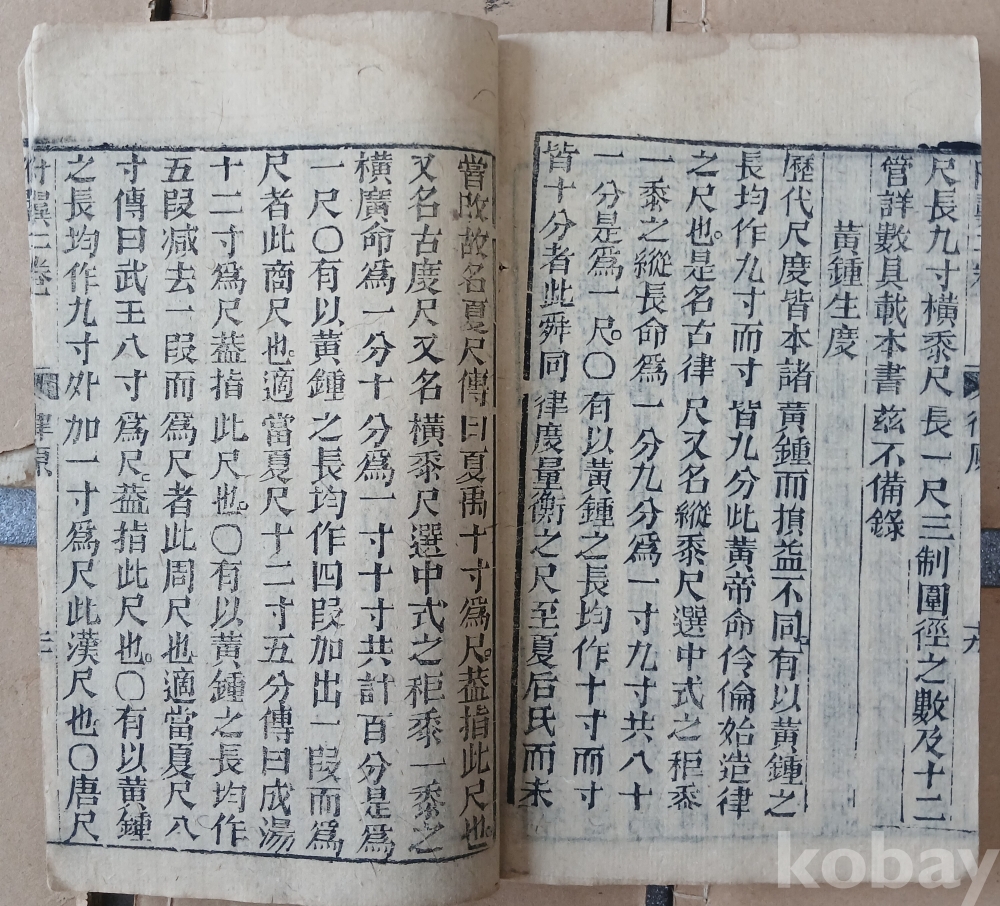 尺長九寸橫黍尺長一尺三制圍徑之數及十二
管詳數具載本書茲不備錄
黃鍾生度
歷代尺度皆本諸黃鍾而損益不同有以黃鍾之
長均作九寸而寸皆九分此黃帝命伶倫始造律
之尺也是名古律尺又名縱黍尺選中式之秬黍
一黍之縱長命爲一分九分爲一寸九寸共八十
一分是爲一尺〇有以黃鍾之長均作十寸而寸
皆十分者此舜同律度量衡之尺至夏后氏而未
嘗改故名夏尺傳曰夏禹十寸爲尺葢指此尺也
又名古度尺又名橫黍尺選中式之秬黍一黍之
橫廣命爲一分十分爲一寸十寸共計百分是爲
一尺〇有以黃鍾之長均作四叚加出一叚而爲
尺者此商尺也適當夏尺十二寸五分傳曰成湯
十二寸爲尺葢指此尺也〇有以黃鍾之長均作
五叚减去一叚而爲尺者此周尺也適當夏尺八
寸傳曰武王八寸爲尺葢指此尺也〇有以黃鍾
之長均作九寸外加一寸爲尺此漢尺也〇唐尺
律原
kobay